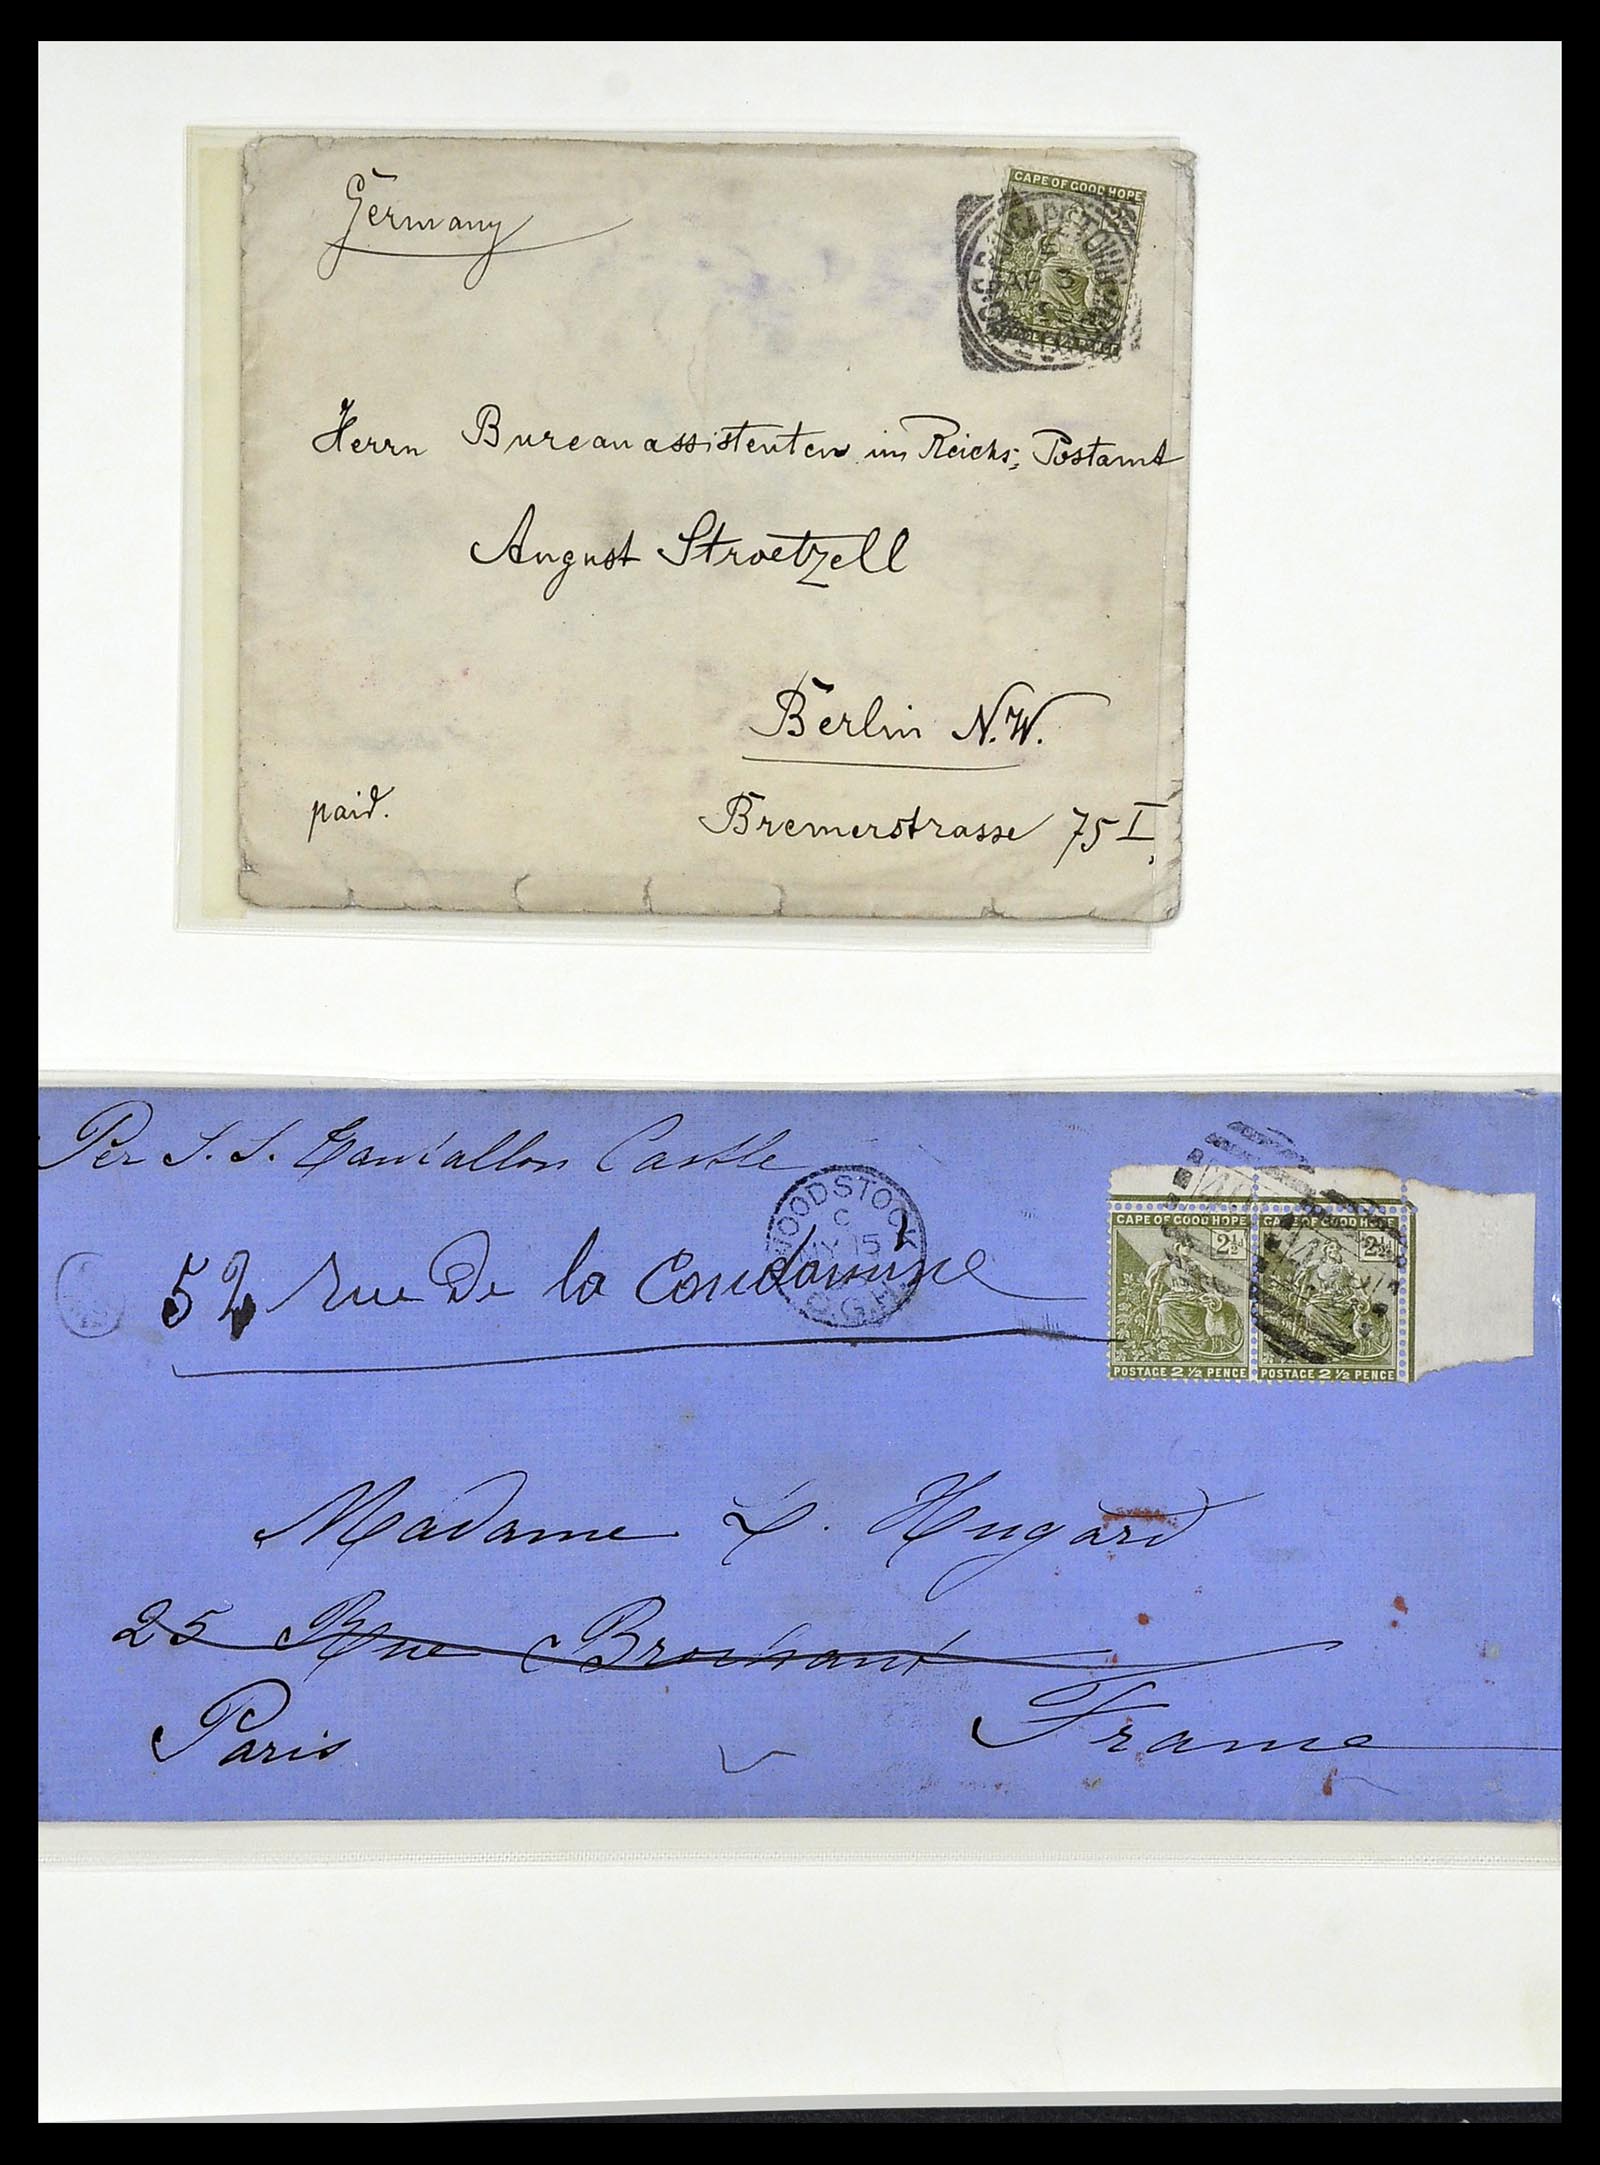 Germany
CAPE OF GOOD HOPE
Herrn Bureauassistenten im Reichs-Postamt
August Stroetzell
Berlin N.W.
paid.
Bremerstrasse 75 I,
Per S. S. Tantallon Castle
WOODSTOCK
C
MY 15
C.G.H.
CAPE OF GOOD HOPE CAPE OF GOOD HOPE
2½d 2½d
POSTAGE 2½ PENCE POSTAGE 2½ PENCE
52 rue De la Condamine
Madame L. Hugard
25 Rue Brochant
Paris
France